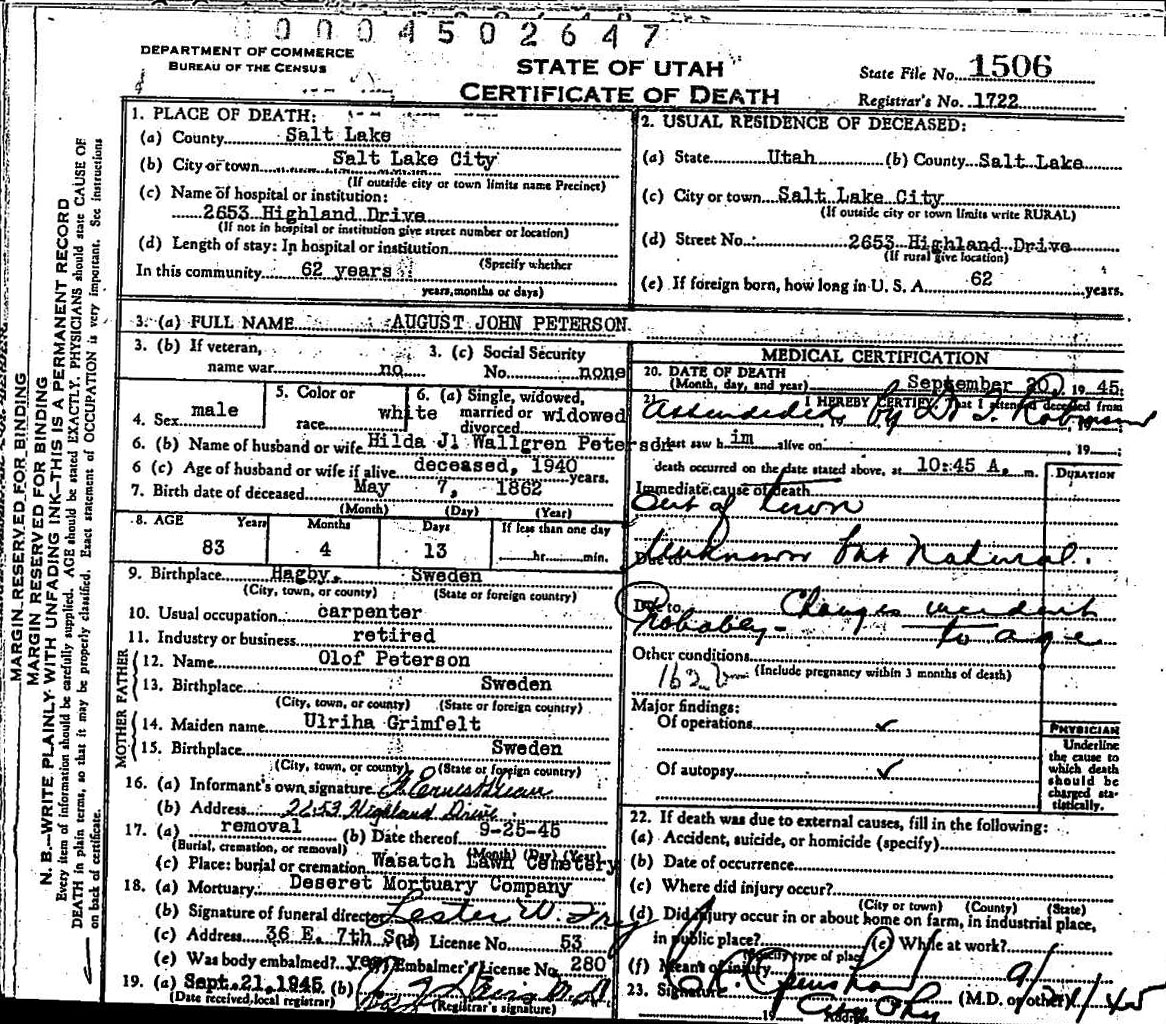 0 0 0 4 5 0 2 6 4 7
DEPARTMENT OF COMMERCE
BUREAU OF THE CENSUS
STATE OF UTAH
CERTIFICATE OF DEATH
State File No. 1506
Registrar's No. 1722
MARGIN RESERVED FOR BINDING
MARGIN RESERVED FOR BINDING
N. B.—WRITE PLAINLY WITH UNFADING INK—THIS IS A PERMANENT RECORD
Every item of information should be carefully supplied. AGE should be stated EXACTLY. PHYSICIANS should state CAUSE OF
DEATH in plain terms, so that it may be properly classified. Exact statement of OCCUPATION is very important. See instructions
on back of certificate.
1. PLACE OF DEATH:
(a) County Salt Lake
(b) City or town Salt Lake City
(If outside city or town limits name Precinct)
(c) Name of hospital or institution:
2653 Highland Drive
(If not in hospital or institution give street number or location)
(d) Length of stay: In hospital or institution
(Specify whether
In this community 62 years
years, months or days)
2. USUAL RESIDENCE OF DECEASED:
(a) State Utah (b) County Salt Lake
(c) City or town Salt Lake City
(If outside city or town limits write RURAL)
(d) Street No. 2653 Highland Drive
(If rural give location)
(e) If foreign born, how long in U. S. A. 62 years.
3. (a) FULL NAME AUGUST JOHN PETERSON
3. (b) If veteran, name war no
3. (c) Social Security No. none
4. Sex male
5. Color or race white
6. (a) Single, widowed, married or divorced widowed
6. (b) Name of husband or wife Hilda Jl Wallgren Peterson
6 (c) Age of husband or wife if alive deceased, 1940 years.
7. Birth date of deceased May 7, 1862
(Month) (Day) (Year)
8. AGE Years Months Days If less than one day
83 4 13 hr. min.
9. Birthplace Hagby, Sweden
(City, town, or county) (State or foreign country)
10. Usual occupation carpenter
11. Industry or business retired
FATHER
12. Name Olof Peterson
13. Birthplace Sweden
(City, town, or county) (State or foreign country)
MOTHER
14. Maiden name Ulriha Grimfelt
15. Birthplace Sweden
(City, town, or county) (State or foreign country)
16. (a) Informant's own signature
(b) Address 2653 Highland Drive
17. (a) removal (b) Date thereof 9-25-45
(Burial, cremation, or removal) (Month) (Day) (Year)
(c) Place: burial or cremation Wasatch Lawn Cemetery
18. (a) Mortuary Deseret Mortuary Company
(b) Signature of funeral director Lester W. Fry
(c) Address 36 E. 7th So. (d) License No. 53
(e) Was body embalmed? yes (f) Embalmer's License No. 280
19. (a) Sept. 21, 1945 (b)
(Date received, local registrar) (Registrar's signature)
MEDICAL CERTIFICATION
20. DATE OF DEATH
(Month, day, and year) September 20, 1945
21. I HEREBY CERTIFY, That I attended deceased from
by Dr
I last saw him alive on 19
death occurred on the date stated above, at 10:45 A. m.
DURATION
Immediate cause of death
Out of town
Due to Unknown but Natural.
Due to
Probably - Changes incident
to age
Other conditions
(Include pregnancy within 3 months of death)
162
Major findings:
Of operations ✓
Of autopsy ✓
PHYSICIAN
Underline
the cause to
which death
should be
charged sta-
tistically.
22. If death was due to external causes, fill in the following:
(a) Accident, suicide, or homicide (specify)
(b) Date of occurrence
(c) Where did injury occur?
(City or town) (County) (State)
(d) Did injury occur in or about home on farm, in industrial place,
in public place? (e) While at work?
(Specify type of place)
(f) Means of injury
23. Signature (M.D. or other) 9/21/45
19 Address City Phy